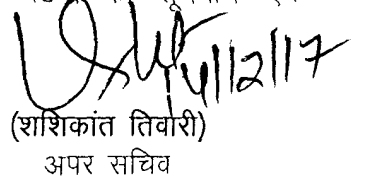 14/12/17
(शशिकांत तिवारी)
अपर सचिव